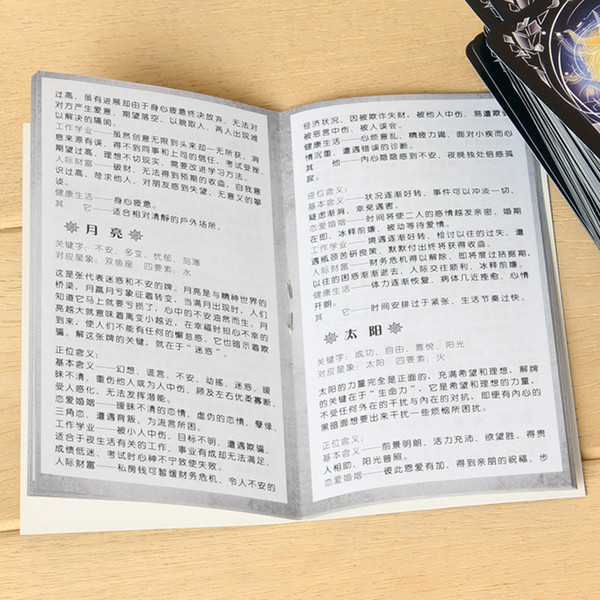 过高，虽有进展却由于身心疲急终决放弃。无法对
对方产生爱意，期望落空。以貌取人，两人出现难
以解决的隔阂。
工作学业——虽然创意无限到头来却一无所获，消
息来源有误，得不到同事和上司的信任。考试受挫，
期望过高，理想不切现实，需要改进学习方法。
人际财富——破财，无法得到预期的收益。自我意
识过高，苛求他人，对朋友感到失望，无意义的攀
谈。
健康生活——身心疲急。
其 它——适合相对清静的户外场所。
月亮
关键字：不安、多变，忧郁、刻薄
对应星象：双鱼座 四要素：水
这是张代表迷惑和不安的牌。月亮是与精神世界的
桥梁，月赢月亏象征着转变，当满月出现时，人们
知道它马上就要亏损了，心中的不安油然而生。月
亮越大就意味着离变小越近，在幸福时担心不幸的
到来，使人们不能有任何的懈怠感。它也暗示着欺
骗。解这张牌的关键，就在于“迷惑”。
正位含义：
基本含义——幻想、谎言、不安、动摇、迷惑、暧
昧不清，重伤他人或为人中伤、顾及左右优柔寡断、
受人感化、无法发挥潜能。
恋爱婚姻——暧昧不清的恋情、虚伪的恋情、孽缘、
三角恋、遭遇背叛、为流言所困。
工作学业——被小人中伤，目标不明，遭遇欺骗，
适合于夜生活有关的工作，事业有成却无法满足，
成绩低迷，考试时心神不宁致使失败。
人际财富——私房钱可暂缓财务危机，令人不安的
经济状况，因被欺诈失财，被他人中伤，易遭欺
被恶言中伤、被人误会。
健康生活——心烦意乱、精疲力竭，面对小疾而心
情沉重、遭遇错误的诊断。
其 他——内心隐隐感到不安，夜晚独处倍感孤
寂。
逆位含义：
基本含义——状况逐渐好转、事件可以冲淡一切，
疑虑渐消、幸免遇害。
恋爱婚姻——时间将使二人的感情越发亲密、婚期
在即、冰释前嫌、被动等待爱情。
工作学业——境遇逐渐好转、检讨以往的过失、遭
遇瓶颈苦研良策、默默付出终将获得收益。
人际财富——财务危机得以解除，即将度过拮据期，
以往的困惑渐渐逝去、人际交往顺利、冰释前嫌。
健康生活——体力逐渐恢复、病体几近痊愈、心情
开朗。
其 它——时间安排过于紧张、生活节奏过快。
太阳
关键字：成功，自由、喜悦、阳光
对应星象：太阳 四要素：火
太阳的力量完全是正面的，充满希望和理想，解牌
的关键在于“生命力”，它是希望和理想的力量，
不受任何外在的干扰与内在的对抗，即使有内心的
黑暗面想要出来干扰一些烦恼所困扰。
正位含义：
基本含义——前景明朗、活力充沛、欲望胜、得贵
人相助、阳光普照。
恋爱婚姻——彼此恩爱有加、得到亲朋的祝福、步